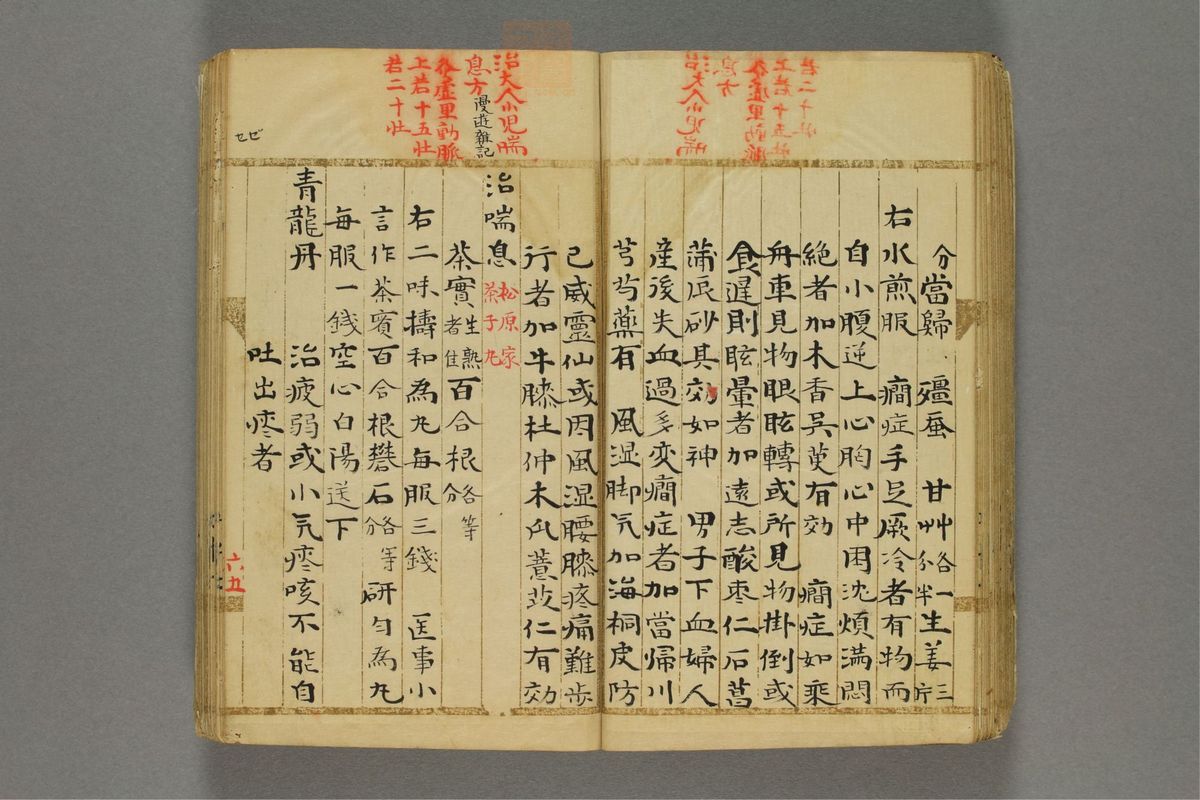 分當歸 殭蚕 甘艸各一分半生姜三片
右水煎服 癇症手足厥冷者有物而
自小腹逆上心胸心中困沈煩満悶
絶者加木香呉萸有効 癇症如乘
舟車見物眼眩轉或所見物掛倒或
食遅則眩暈者加遠志酸枣仁石菖
蒲辰砂其効如神 男子下血婦人
産後失血過多変癇症者加當帰川
芎芍薬有 風湿脚気加海桐皮防
己威靈仙或因風湿腰膝疼痛難歩
行者加牛膝杜仲木瓜薏苡仁有効
治大人小児喘
息方 漫遊雜記
虚里動脈
上若十五壯
若二十壯
治喘息 松原家茶子丸
茶實生熟者佳百合根各等分
右二味擣和為丸毎服三錢 医事小
言作茶實百合根礬石各等分研匀為丸
毎服一錢空心白湯送下
青龍丹 治疲弱或小気痰咳不能自
吐出痰者
六五